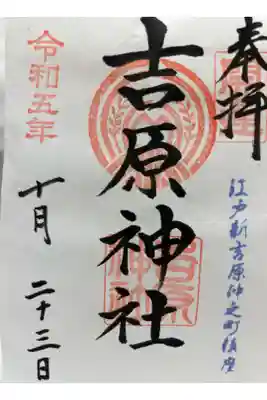 奉拝
江戸新吉原仲之町鎮座
吉原神社
令和五年
十月二十三日